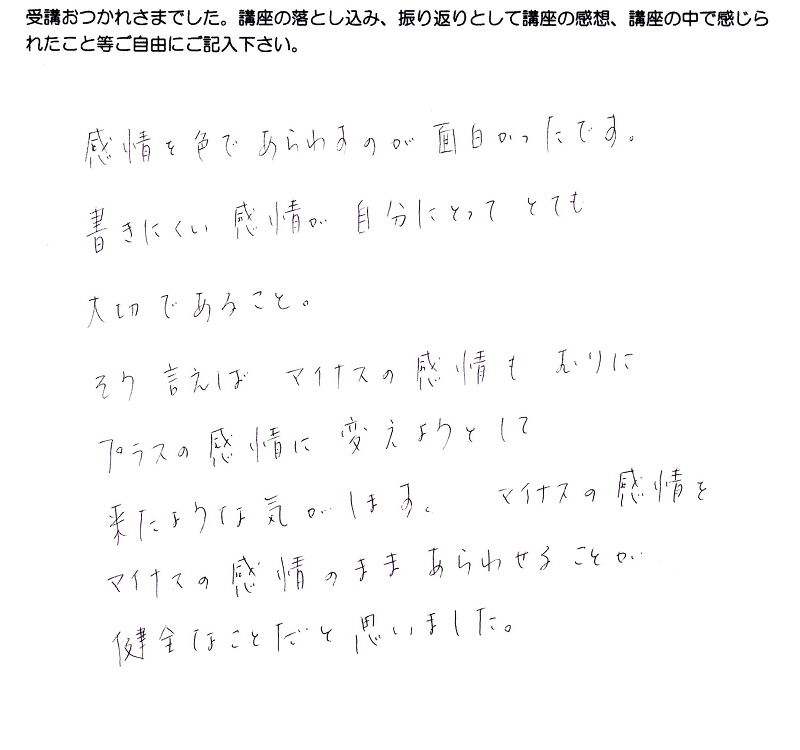 受講おつかれさまでした。講座の落とし込み、振り返りとして講座の感想、講座の中で感じら
れたこと等ご自由にご記入下さい。
感情を色であらわすのが 面白かったです。
書きにくい 感情が 自分にとって とても
大切であること。
そう言えば マイナスの感情も むりに
プラスの感情に変えようとして
来たような気がします。 マイナスの感情を
マイナスの感情のままあらわせることが
健全なことだと思いました。